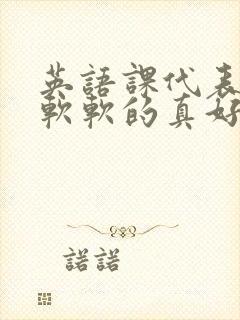 英語課代表
軟軟的真好
諾諾